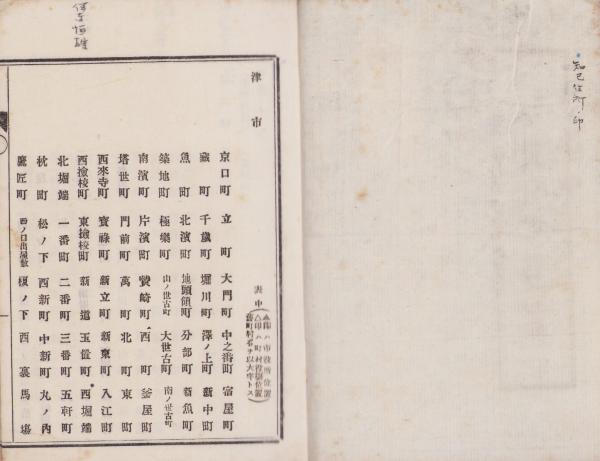 知己住所ノ印
津市
表中
▲印ハ市役所位置
△印ハ町村役場位置
舊町村名ヲ以大字トス
京口町 立町 大門町 中之番町 宿屋町
藏町 千歲町 堀川町 澤ノ上町 新中町
魚町 北濱町 地頭領町 分部町 新魚町
築地町 極樂町 山ノ世古町 大世古町 南ノ世古町
南濱町 片濱町 贄崎町 西町 釜屋町
塔世町 門前町 萬町 北町 東町
西來寺町 寶祿町 新立町 新東町 入江町
西撿校町 東撿校町 新道 玉置町 西堀端
北堀端 一番町 二番町 三番町 五軒町
枕町 松ノ下 西新町 中新町 丸ノ內
鷹匠町 四ノ口出屋敷 榎ノ下 西裏 馬塲